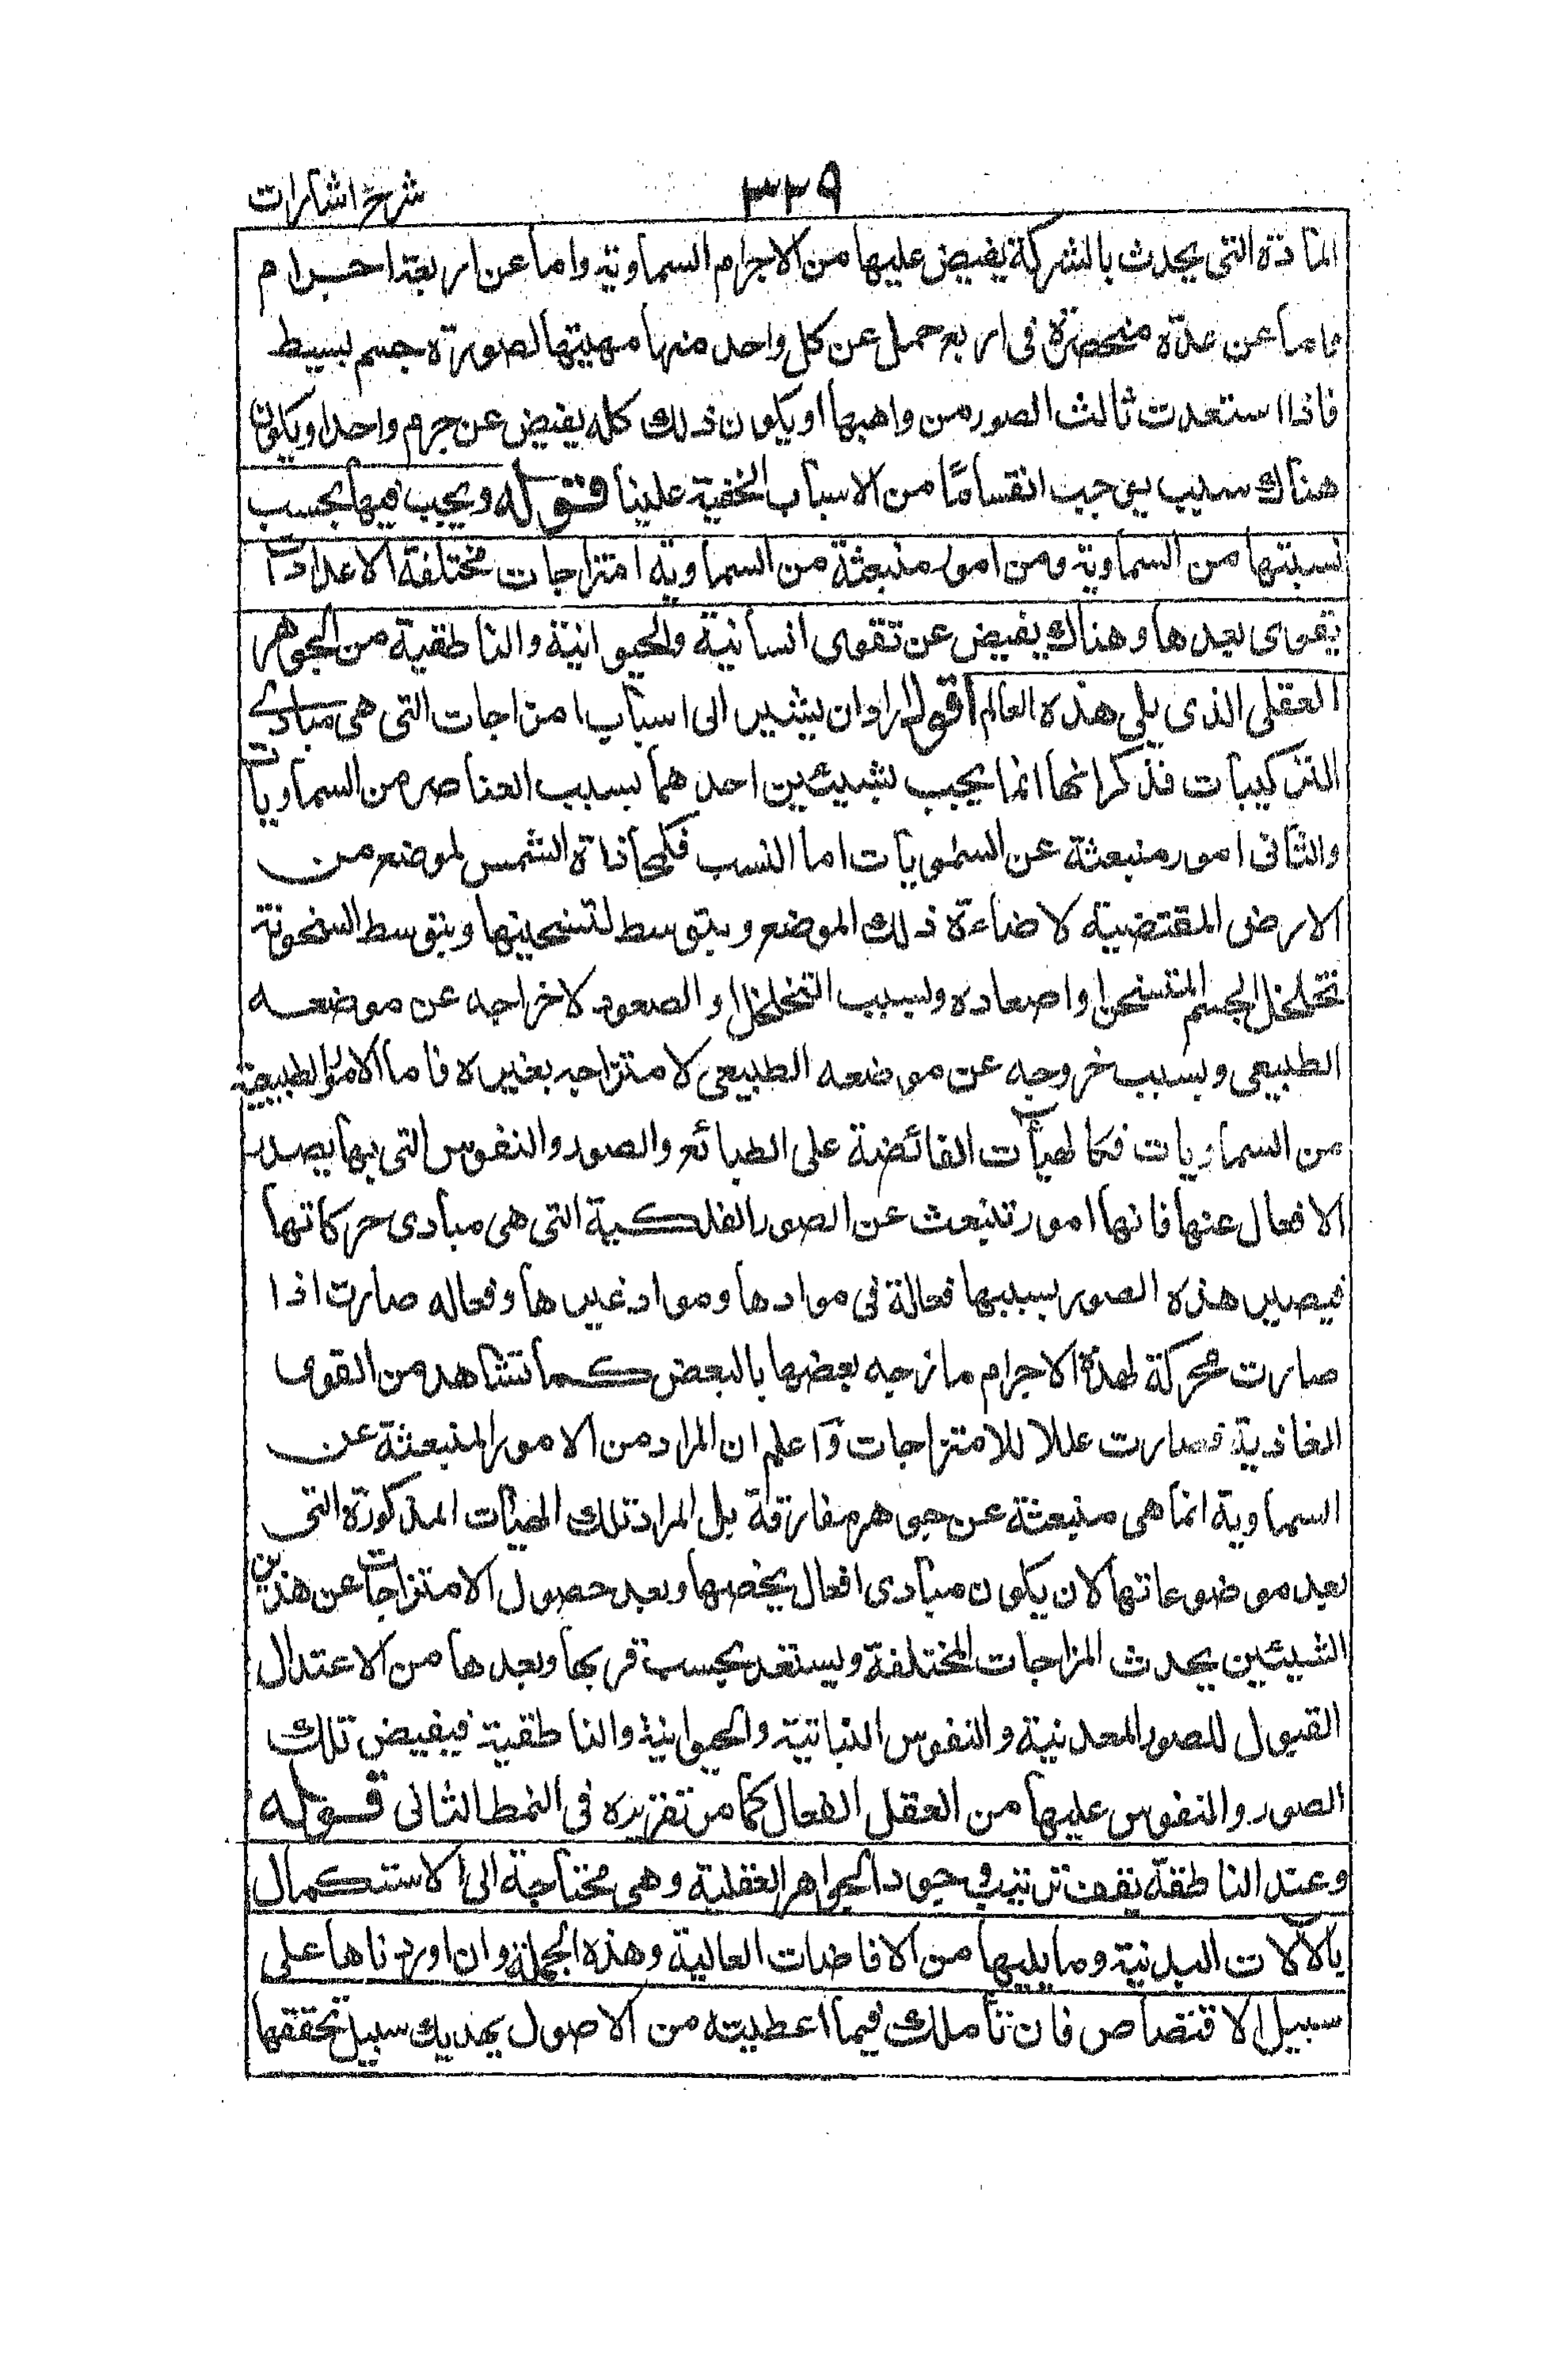 ٣٣٩ شرح اشارات
المادة التى يحدث بالشركة يفيض عليها من الاجرام السماوية واما عن اربعة اجرام
فاما عن عدة منحصرة فى اربع حمل عن كل واحد منها مهيتها لصورة جسم بسيط
فاذا استعدت ثالث الصور من واهبها او يكون ذلك كله يفيض عن جرم واحد او يكون
هناك سبب يوجب انقساما من الاسباب الخفية علينا قوله ويجب فيها بحسب
نسبتها من السماوية ومن امور منبعثة من السماوية امتزاجات مختلفة الاعدادات
يقوى بعدها وهناك يفيض عن تقوى انسانية والحيوانية والناطقية من الجوهر
العقلى الذى يلى هذه العالم اقول اراد ان يشير الى اسباب امزاجات التى هى مبادى
التركيبات فذكر انها انما يجب بشيئين احدهما بسبب العناصر من السماويات
والثانى امور منبعثة عن السماويات اما النسب فكمحاذاة الشمس لموضع من
الارض المقتضية لاضاءة ذلك الموضع وبتوسط لتسخينها وبتوسط السخونة
تخلخل الجسم المتسخن او اصعاده وبسبب التخلخل او الصعود لاخراجه عن موضعه
الطبيعى وبسبب خروجه عن موضعه الطبيعى لامتزاجه بغيره فاما الامور الطبيعية
من السماويات فكالهيآت الفائضة على الطبائع والصور والنفوس التى بها يصدر
الافعال عنها فانها امور تنبعث عن الصور الفلكية التى هى مبادى حركاتها
فيصير هذه الصور بسببها فعالة فى موادها ومواد غيرها وفعاله صارت اذا
صارت محركة لهذه الاجرام مازجه بعضها بالبعض كما تشاهد من القوى
الغاذية فصارت عللا للامتزاجات وآعلم ان المراد من الامور المنبعثة عن
السماوية انما هى منبعثة عن جوهر مفارقة بل المراد تلك الهيآت المذكورة التى
بعد موضوعاتها لان يكون مبادى افعال يخصها وبعد حصول الامتزاجات عن هذين
الشيئين يحدث المزاجات المختلفة ويستعد بحسب قربها وبعدها من الاعتدال
القبول للصور المعدنية والنفوس النباتية والحيوانية والناطقية فيفيض تلك
الصور والنفوس عليها من العقل الفعال كما مر تقريره فى النمط الثانى قوله
وعند الناطقة يقف ترتيب وجود الجواهر العقلية وهى محتاجة الى الاستكمال
بالآلات البدنية وما يليها من الافاضات العالية وهذه الجملة وان اوردناها على
سبيل الاقتصاص فان تأملك فيما اعطيته من الاصول يهديك سبيل تحققها